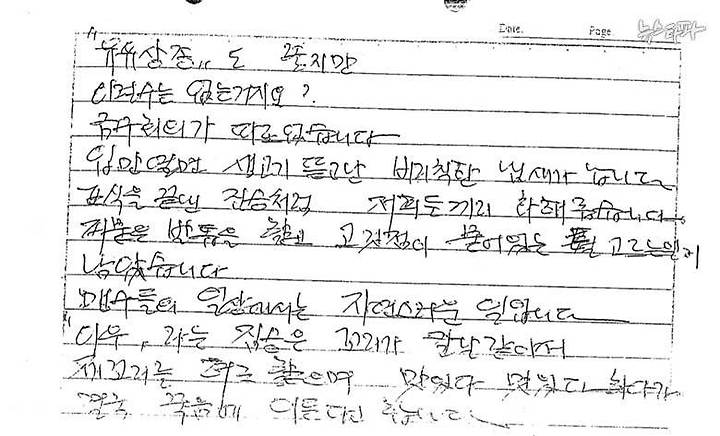 Date. Page 뉴스타파
"유유상종" 도 좋지만
이럴수는 없는거지요?
금수회의가 따로없습니다
입만열면 생고기 뜯고난 비릿한 냄새가 납니다
포식을 끝낸 짐승처럼 저희들끼리 화해롭습니다.
찌꺼은 반통을 고 고 점이 붙어있는 뼈 고르는일이
남았습니다
맹수들의 일상에서는 자연스러운 일입니다
"여우" 라는 짐승은 꼬리가 칼날같아서
제꼬리는 혀로 핥으며 맛있다 맛있다 하다가
결국 죽음에 이른다고 합니다.